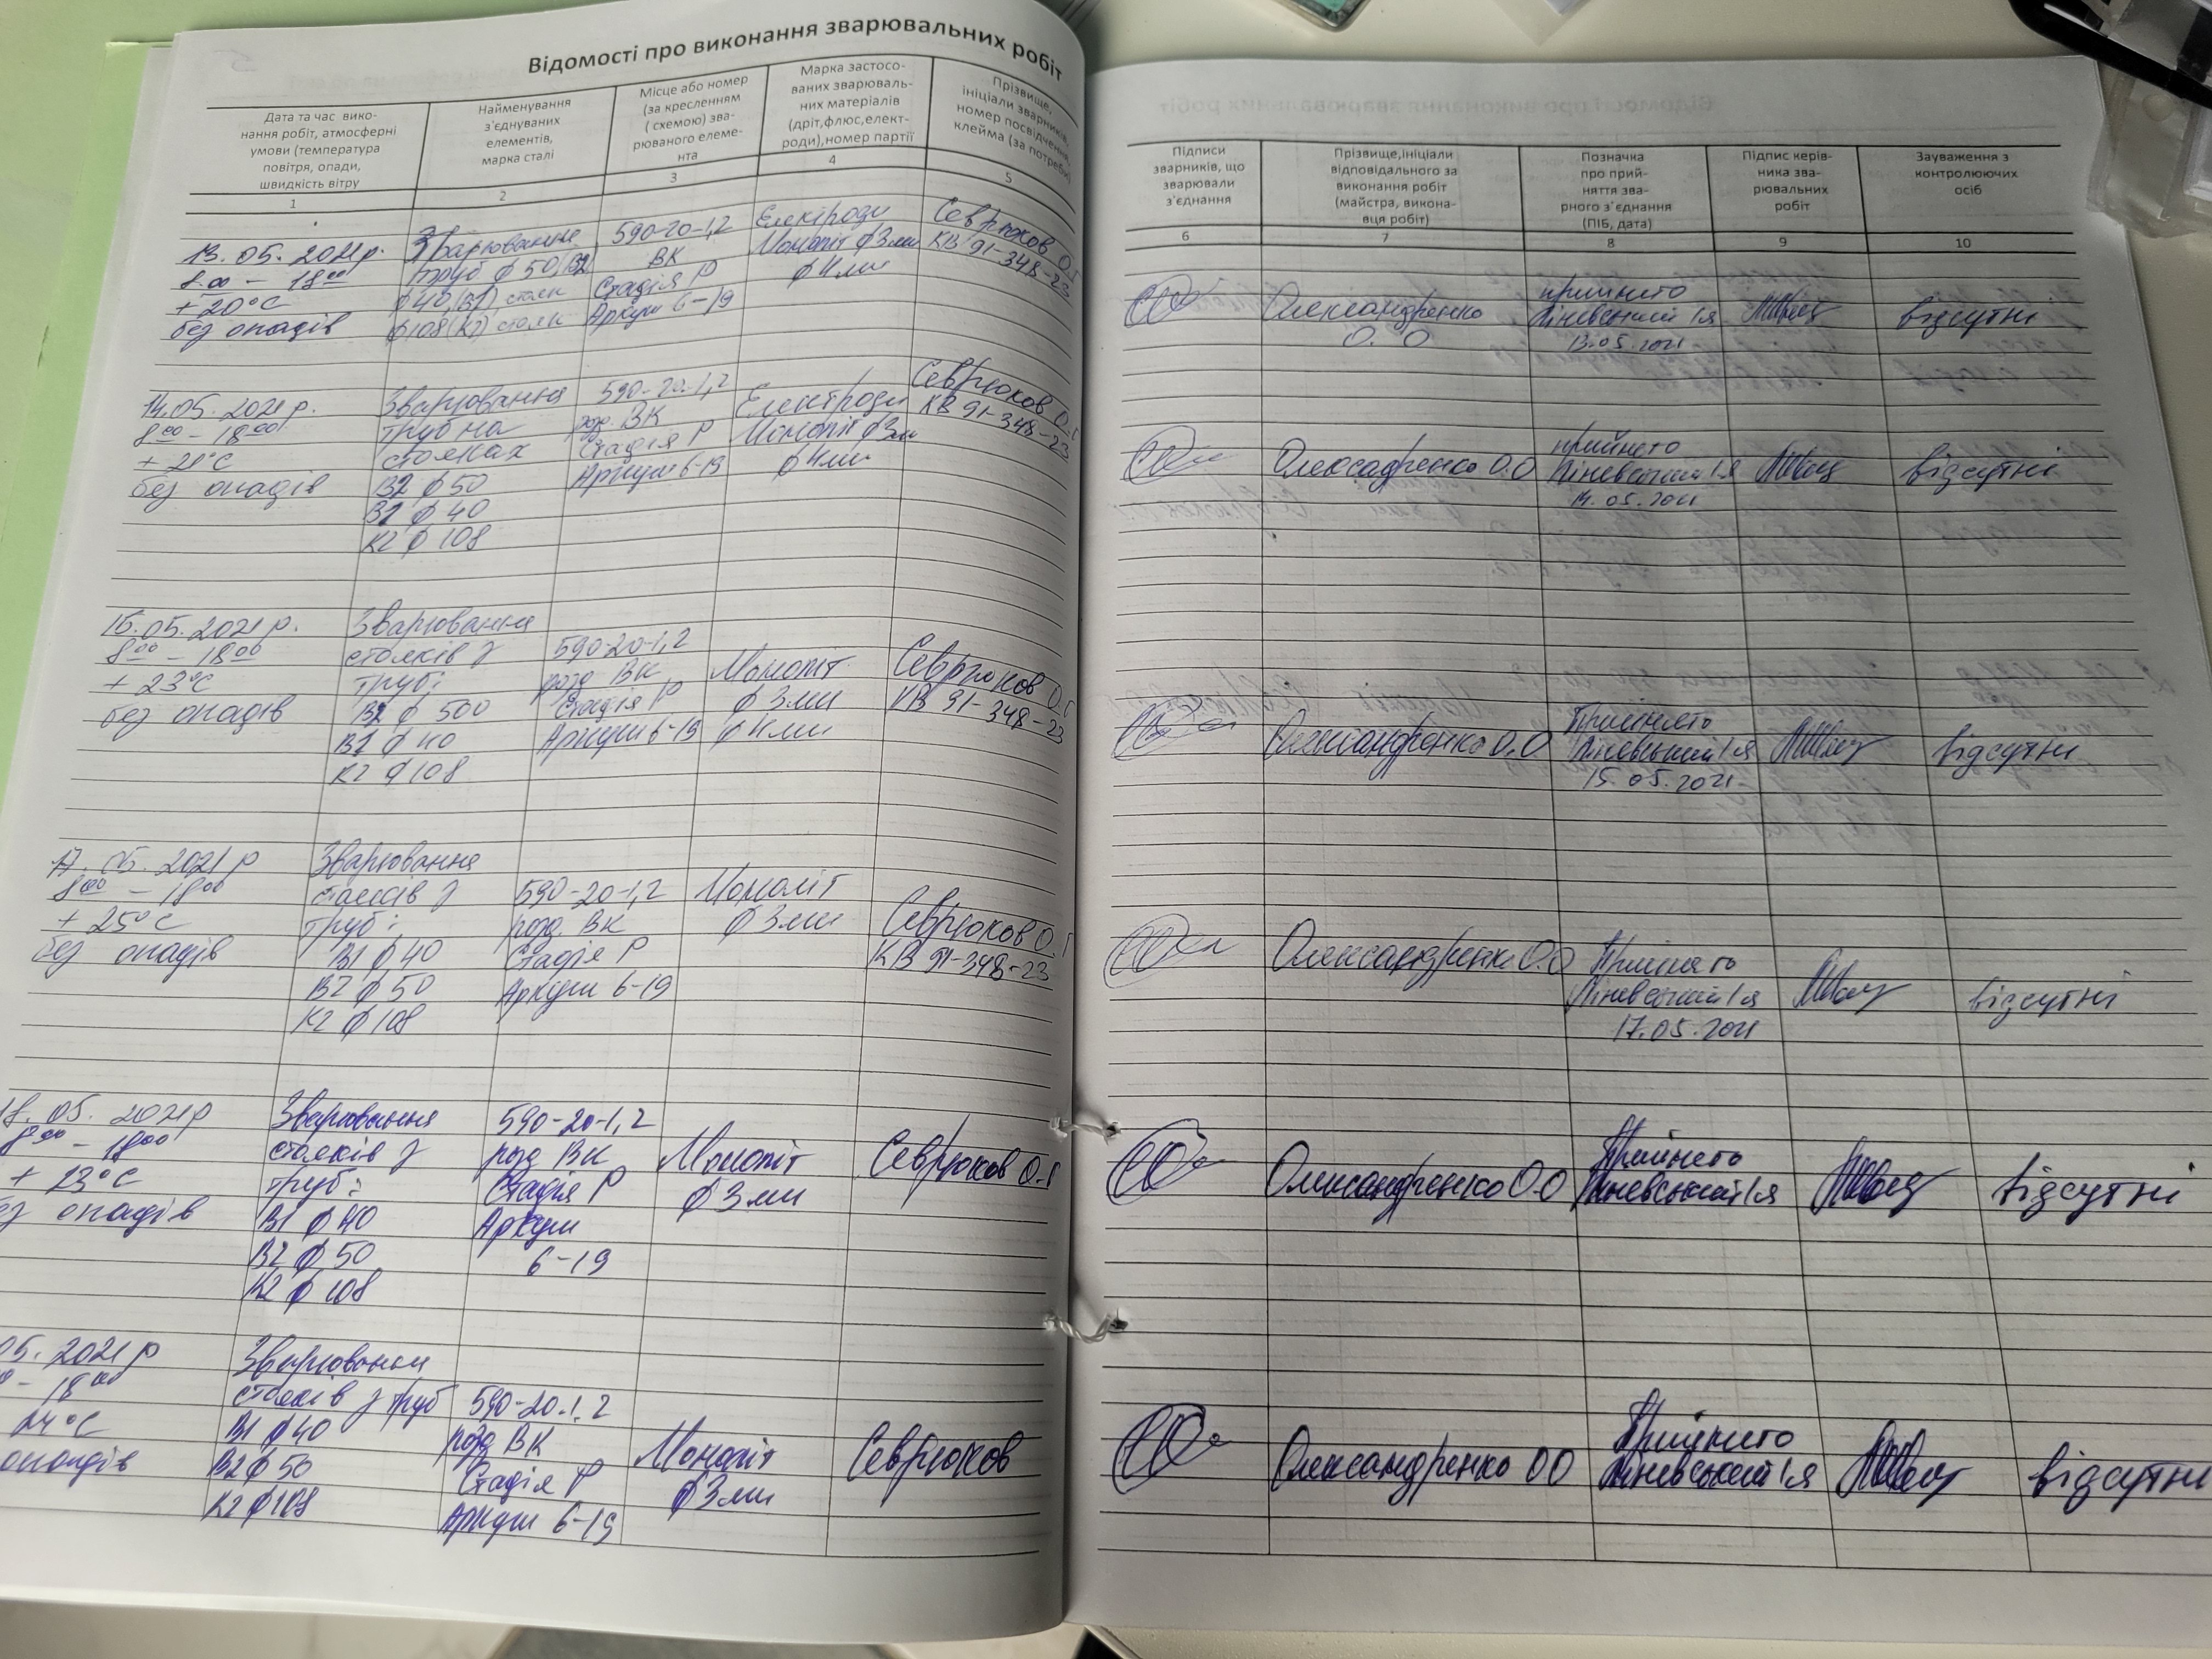 Відомості про виконання зварювальних робіт
Дата та час вико-
нання робіт, атмосферні
умови (температура
повітря, опади,
швидкість вітру
Найменування
з'єднуваних
елементів,
марка сталі
Місце або номер
(за кресленням
( схемою) зва-
рюваного елеме-
нта
Марка застосо-
ваних зварюваль-
них матеріалів
(дріт,флюс,елект-
роди),номер партії
Прізвище,
ініціали зварників,
номер посвідчення,
клейма (за потреби)
1
2
3
4
5
13.05.2021р.
8.00 - 18 00
+ 20°С
без опадів
Зварювання
труб ф 50,(В2)
ф 40,(В1) стояк
ф108(К2) стояк
590-20-1,2
ВК
Стадія Р
Аркуш 6-19
Електроди
Моноліт ф 3мм
ф 4мм
Севрюков О.Г
КВ 91-348-23
14.05.2021р.
8 00 - 18 00
+ 21°С
без опадів
Зварювання
труб на
стояках
В2 ф 50
В1 ф 40
К2 ф 108
590-20-1,2
розд. ВК
Стадія Р
Аркуш 6-19
Електроди
Моноліт ф3мм
ф 4мм
Севрюков О.Г
КВ 91-348-23
15.05.2021р.
8 00 - 18 00
+ 23°С
без опадів
Зварювання
стояків з
труб:
В2 ф 500
В1 ф 40
К2 ф 108
590-20-1,2
розд ВК
Стадія Р
Аркуш 6-19
Моноліт
ф 3мм
ф 4мм
Севрюков О.Г
КВ 91-348-23
17.05.2021р
8 00 - 18 00
+ 25°С
без опадів
Зварювання
стояків з
труб:
В1 ф 40
В2 ф 50
К2 ф 108
590-20-1,2
розд. ВК
Стадія Р
Аркуш 6-19
Моноліт
ф 3мм
Севрюков О.Г
КВ 91-348-23
18.05.2021р
8 00 - 18 00
+ 23°С
ез опадів
Зварювання
стояків з
труб:
В1 ф 40
В2 ф 50
К2 ф 108
590-20-1,2
розд ВК
Стадія Р
Аркуш
6-19
Моноліт
ф 3мм
Севрюков О.Г
05.2021р
- 18 00
24°С
опадів
Зварювання
стояків з труб
В1 ф 40
В2 ф 50
К2 ф108
590-20-1,2
розд ВК
Стадія Р
Аркуш 6-19
Моноліт
ф 3мм
Севрюков
Підписи
зварників, що
зварювали
з'єднання
Прізвище,ініціали
відповідального за
виконання робіт
(майстра, викона-
вця робіт)
Позначка
про прий-
няття зва-
рного з'єднання
(ПІБ, дата)
Підпис керів-
ника зва-
рювальних
робіт
Зауваження з
контролюючих
осіб
6
7
8
9
10
Олександренко
О.О
прийнято
13.05.2021
відсутні
Олексадренко О.О
прийнято
14.05.2021
відсутні
Олександренко О.О
Прийнято
15.05.2021
відсутні
Олександренко О.О
Прийнято
17.05.2021
відсутні
Олександренко О.О
Прийнято
відсутні
Олександренко ОО
Прийнято
відсутні